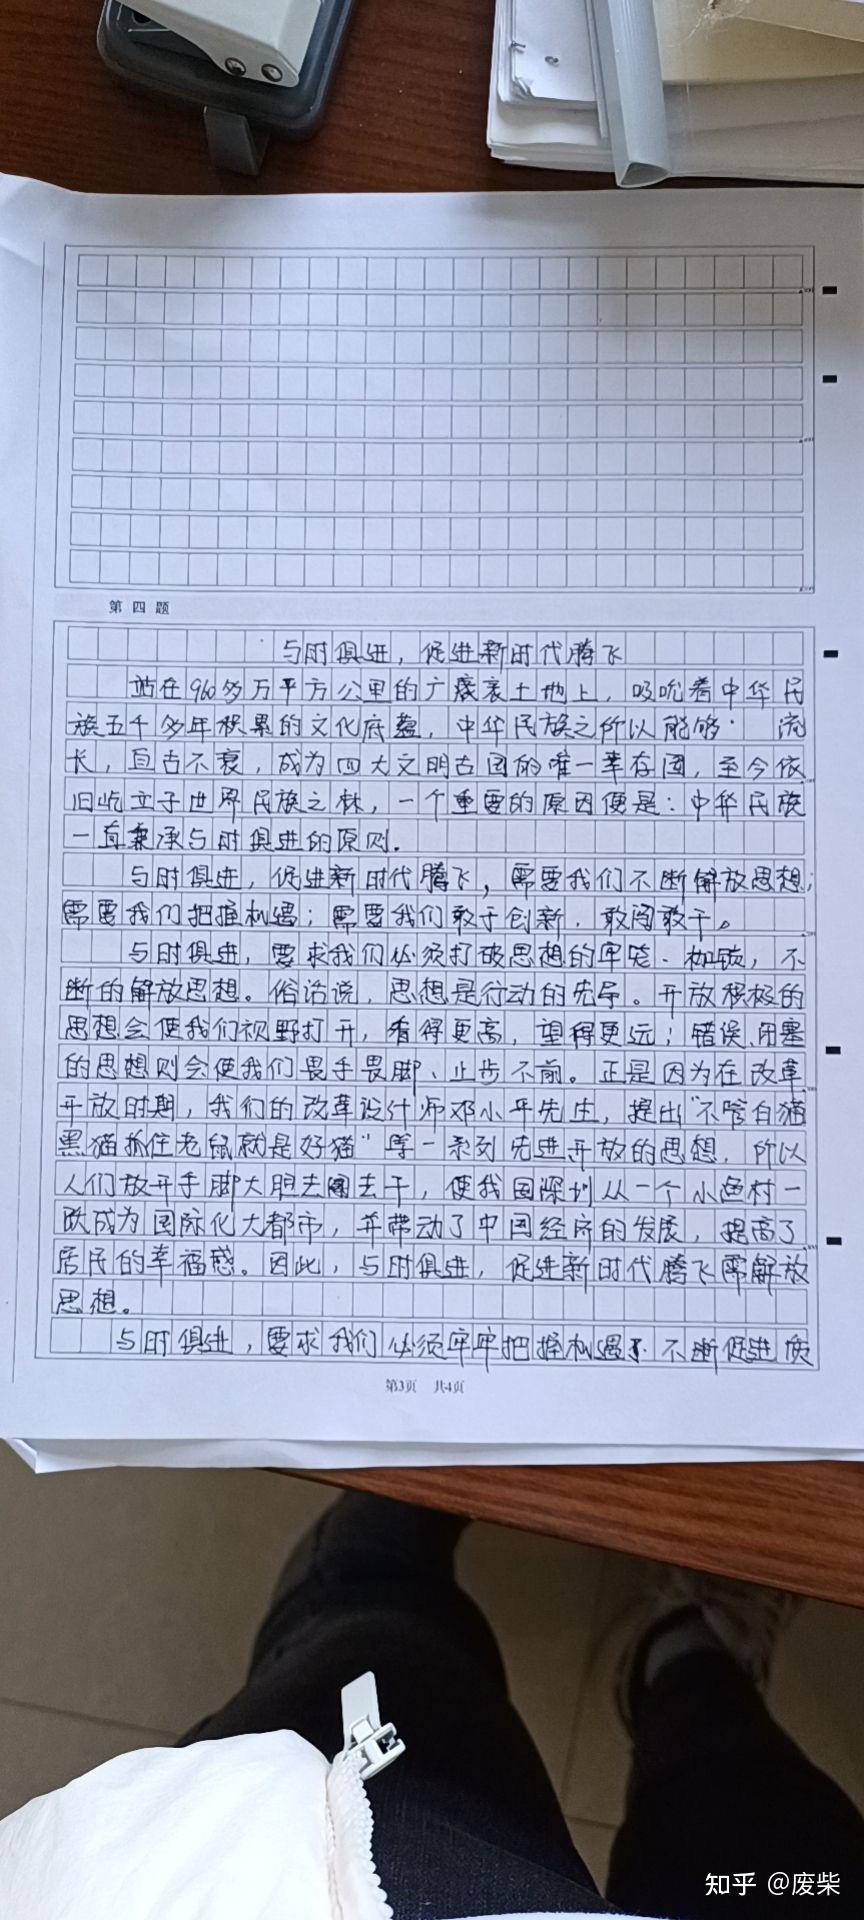 第四题
与时俱进，促进新时代腾飞
站在960多万平方公里的广袤土地上，吸吮着中华民
族五千多年积累的文化底蕴，中华民族之所以能够 流
长，亘古不衰，成为四大文明古国的唯一幸存国，至今依
旧屹立于世界民族之林，一个重要的原因便是：中华民族
一直秉承与时俱进的原则.
与时俱进，促进新时代腾飞，需要我们不断解放思想；
需要我们把握机遇；需要我们敢于创新，敢闯敢干。
与时俱进，要求我们必须打破思想的牢笼、枷锁，不
断的解放思想。俗话说，思想是行动的先导。开放积极的
思想会使我们视野打开，看得更高，望得更远；错误、闭塞
的思想则会使我们畏手畏脚、止步不前。正是因为在改革
开放时期，我们的改革设计师邓小平先生，提出“不管白猫
黑猫抓住老鼠就是好猫”等一系列先进开放的思想，所以
人们放开手脚大胆去闯去干，使我国深圳从一个小渔村一
跃成为国际化大都市，并带动了中国经济的发展，提高了
居民的幸福感。因此，与时俱进，促进新时代腾飞需解放
思想。
与时俱进，要求我们必须牢牢把握机遇 不断促进质
第3页 共4页
知乎 @废柴